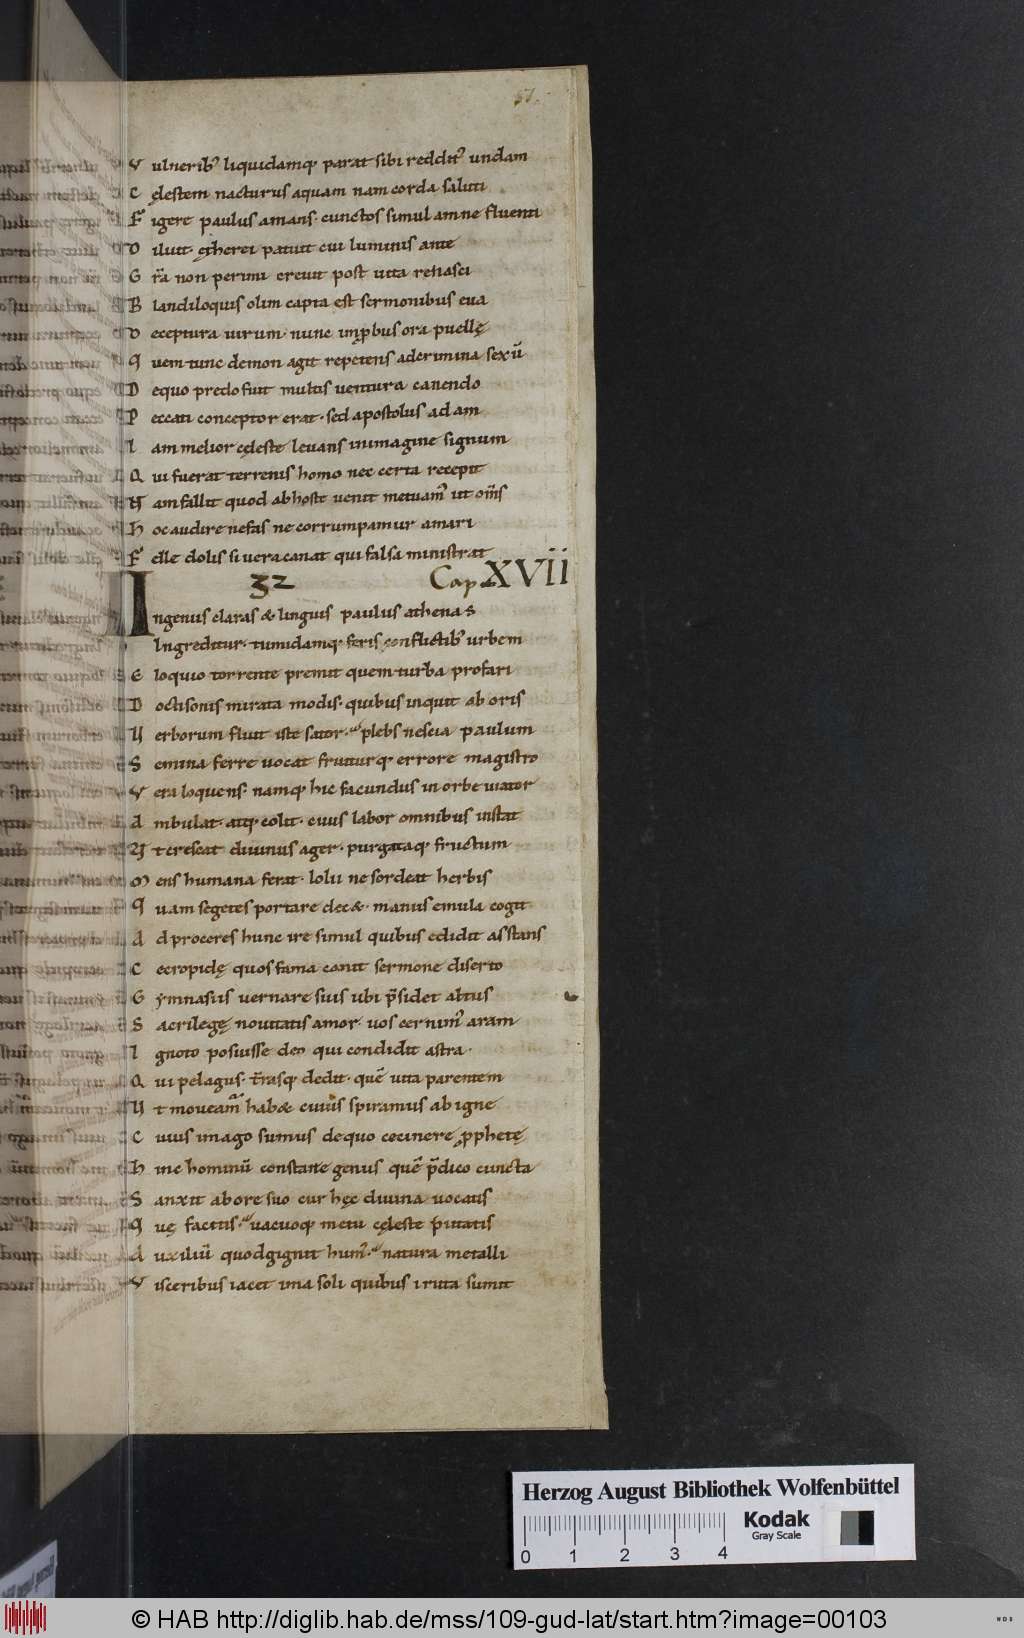 57.
V ulnerib' liquidamq; parat sibi reddit' undam
C ęlestem nacturus aquam nam corda saluti
F igere paulus amans. cunctos simul amne fluenti
D iluit. ętherei patuit cui luminis ante
G r̃a non perimi creuit post uita renasci
B landiloquis olim capta est sermonibus eua
D eceptura uirum. nunc improbus ora puellę
q uem tunc demon agit repetens ad crimina sexũ
D e quo predo fuit multis uentura canendo
P eccati conceptor erat. sed apostolus adam
I am melior cęleste leuans in imagine signum
Q ui fuerat terrenis homo nec certa recepit
N am fallit quod ab hoste uenit metuam' ut om̃s
h oc audire nefas ne corrumpamur amari
F elle dolis si uera canat qui falsa ministrat
32 Cap XVII
Ingenuis claras & linguis paulus athenas
Ingreditur. tumidamq; feris conflictib' urbem
E loquio torrente premit quem turba profari
D octisonis mirata modis. quibus inquit ab oris
V erborum fluit iste sator. plebs nescia paulum
S emina ferre uocat fruiturq; errore magistro
V era loquens. namq; hic facundus in orbe uiator
A mbulat. atq; colit. cuius labor omnibus instat
V t crescat diuinus ager. purgataq; fructum
M ens humana ferat. lolii ne sordeat herbis
q uam segetes portare dec&. manus emula cogit
A d proceres hunc ire simul quibus edidit asstans
C ecropidę quos fama canit sermone diserto
G ymnasiis uernare suis ubi p̃sidet abtus
S acrilegę nouitatis amor. uos cernim' aram
I gnoto posuisse deo qui condidit astra.
Q ui pelagus. t̃rasq; dedit. quẽ uita parentem
V t moueam' hab& cuius spiramus ab igne
C uius imago sumus de quo cecinere prophetę
h inc hominũ constare genus quẽ p̃dico cuncta
S anxit ab ore suo cur hęc diuina uocatis
q uę facitis. uacuoq; metu cęleste putatis
A uxiliũ quod gignit hum'. natura metalli
V isceribus iacet ima soli quibus iruta sumit
Herzog August Bibliothek Wolfenbüttel
Kodak
Gray Scale
0 1 2 3 4
© HAB http://diglib.hab.de/mss/109-gud-lat/start.htm?image=00103